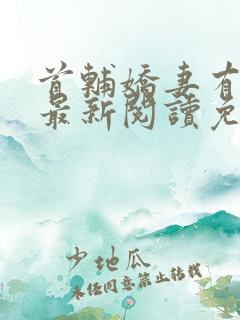 首輔嬌妻有
最新閱讀免
少地瓜
未经同意禁止转载